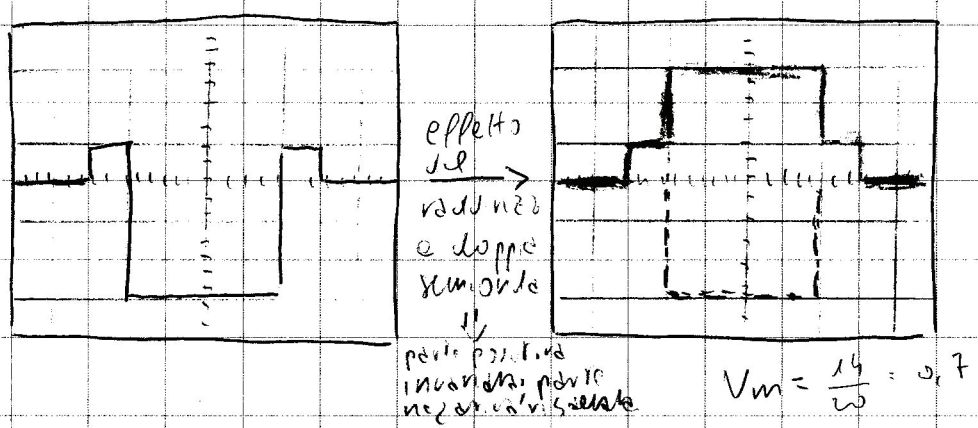 effetto
del
raddrizz
a doppia
semionda
parte positiva
invariata, parte
negativa ribaltata
Vm = 14/20 = 0,7